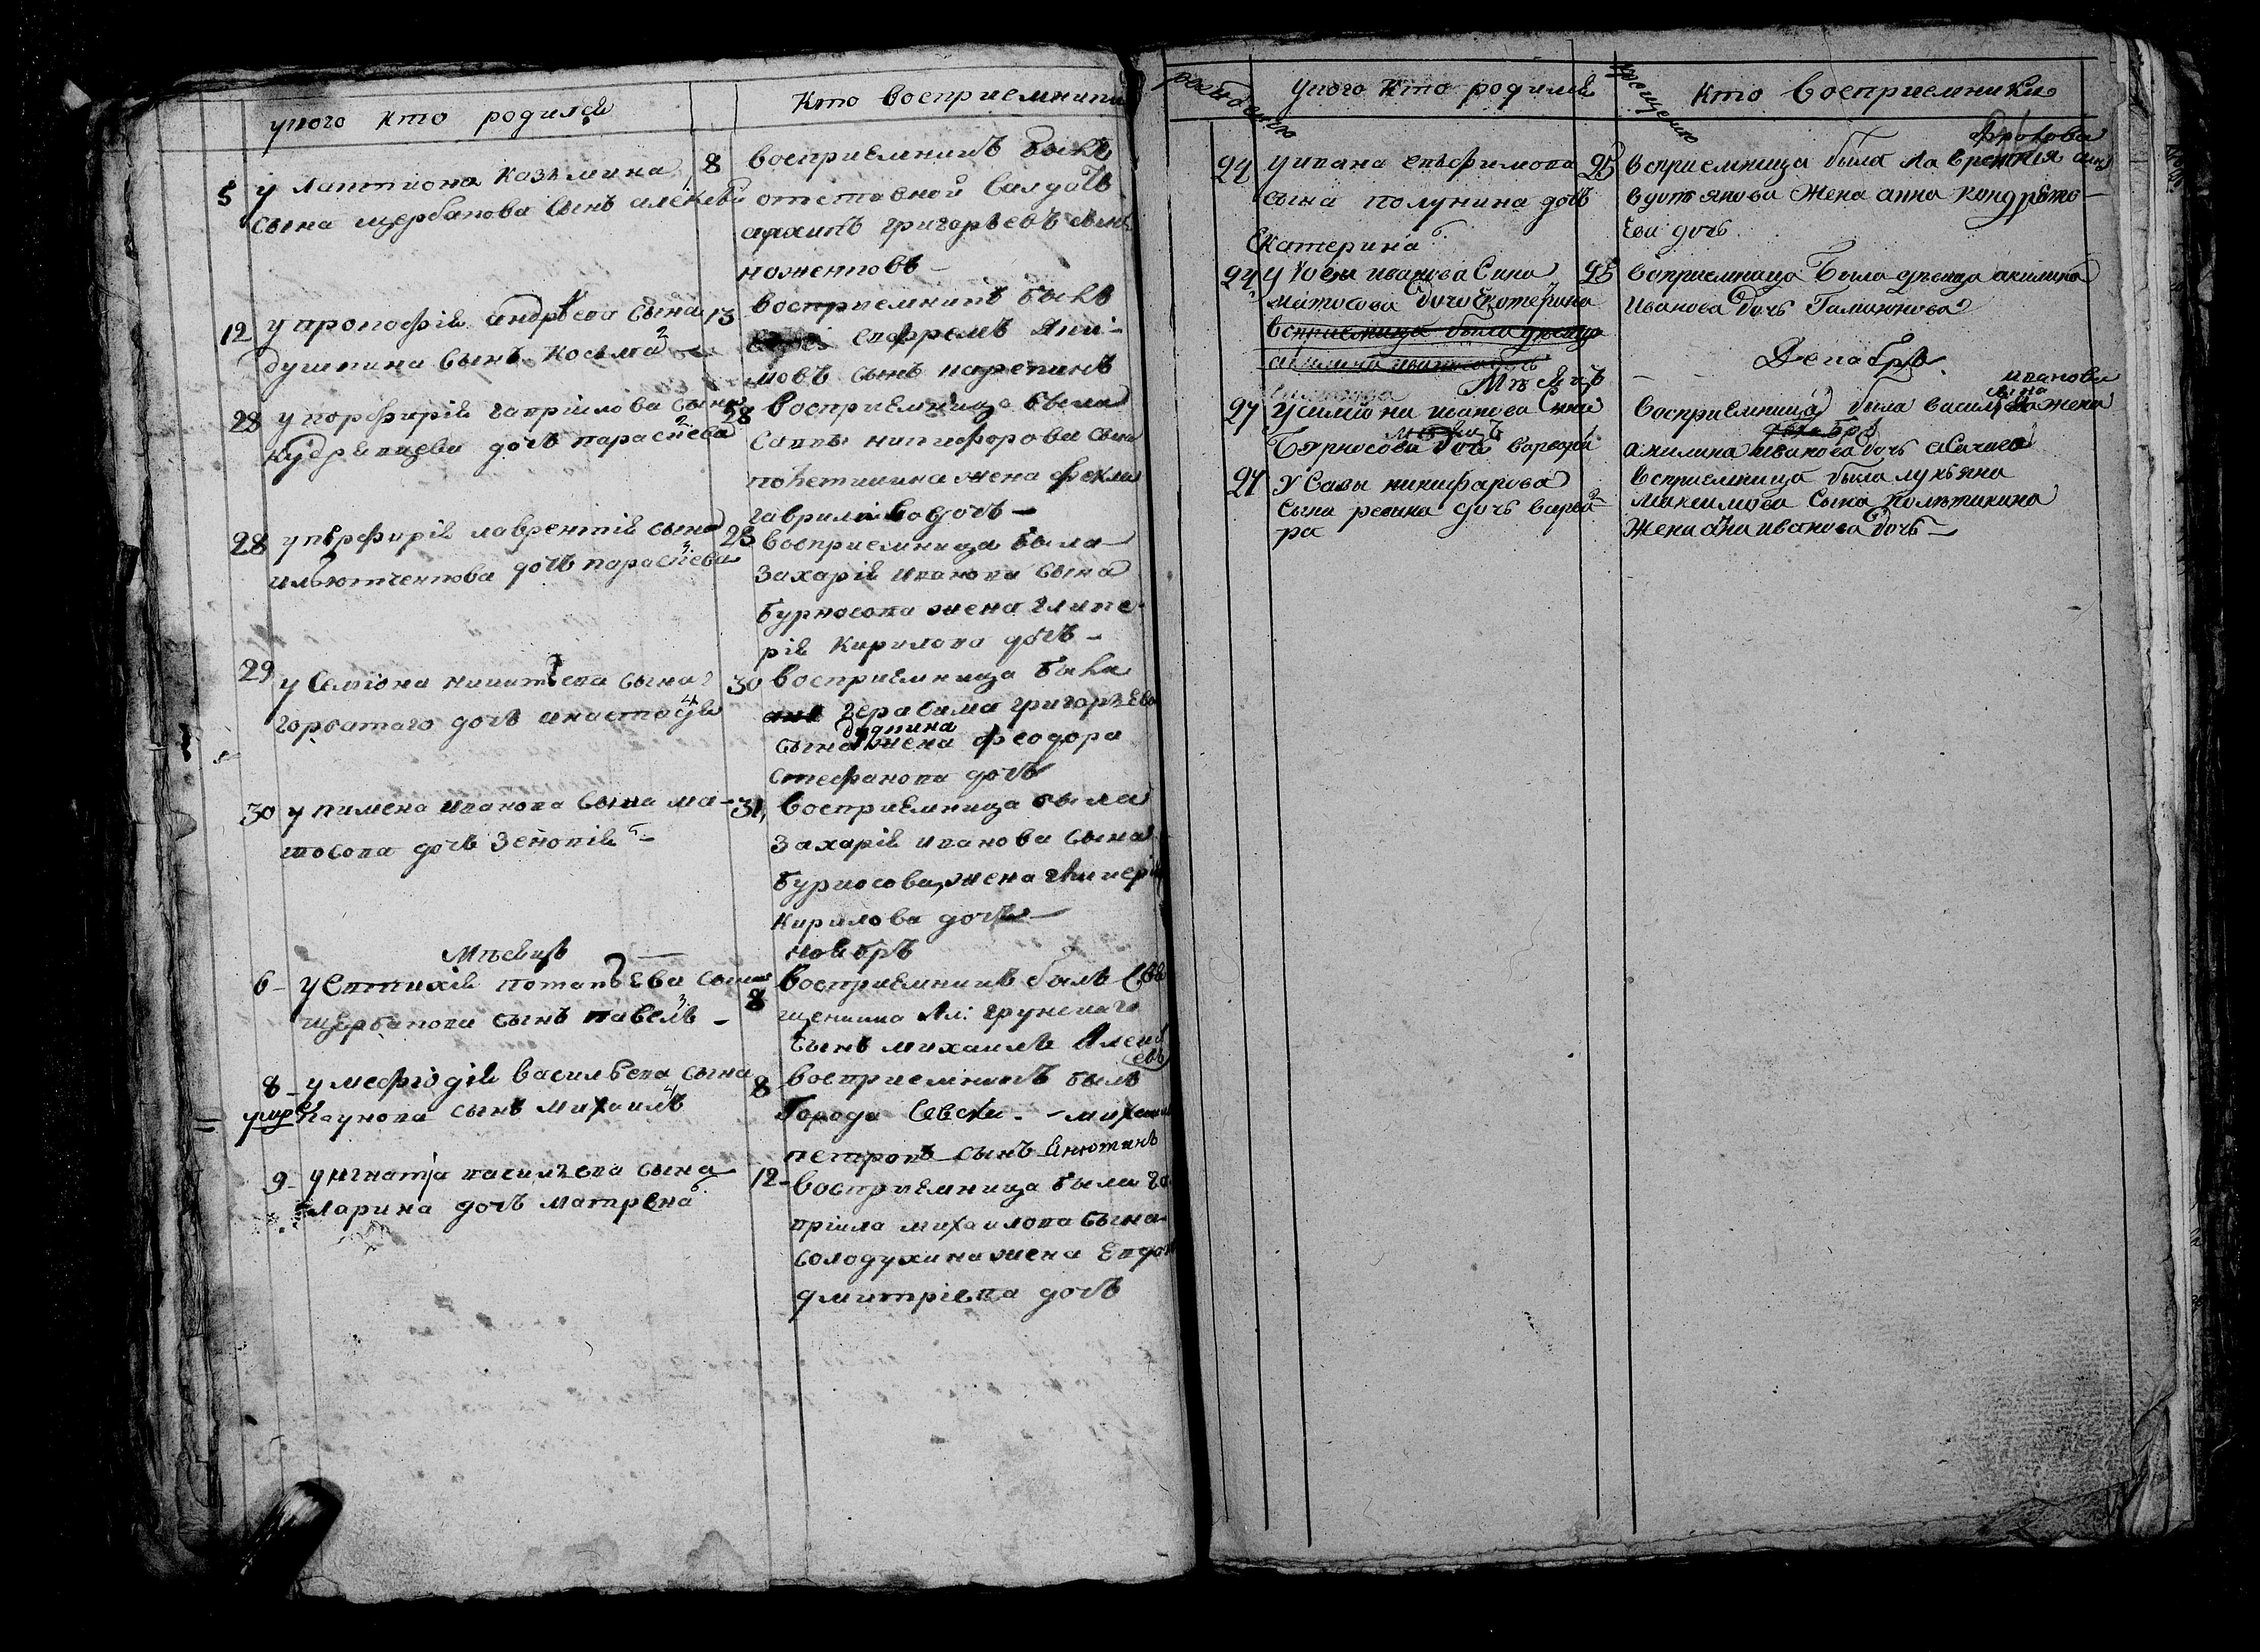 уного кто родился
Кто восприемники
5 у Лаптиона Казьмина
сына щербакова сынъ алекѣй
8 восприемникъ былъ
отставной Салдатъ
архипъ григорьевъ сынъ
ноженковъ
12 у прокофія андрѣева сына
душкина сынъ косьма 2
13 восприемникъ былъ
Евфремъ Яки-
мовъ сынъ карепинъ
28 у порфирія гавріилова сына
кудрявцева дочь параскева 2
28 восприемница была
Саввы никифорова сына
полетикина жена фекла
гаврилова дочь
28 у перфирія лаврентія сына
ильютченкова дочь параскева 3
28 восприемница была
Захарія иванова сына
бурносова жена глике-
рія Кирилова дочь
29 у Семіона никитьева сына
горбатаго дочь анастасія 4
30 восприемница была
герасима григорьева
будкина
сына жена феодора
стефанова дочь
30 у пимена иванова сына ма-
тосова дочь Зеновія 5
31, восприемница была
Захарія иванова сына
бурносова, жена гликерія
Кирилова дочь
Мѣсяцъ ноябрь
6 у Евтихія потапьева сына
щербакова сынъ павелъ 3
8 восприемникъ былъ Свя
щенника Ал: грунскаго
сынъ михаилъ Алексѣ
евъ
8 у мефодія васильева сына
умре паукова сынъ михаилъ 4
8 восприемникъ былъ
Города Севска михаилъ
петровъ сынъ Енютинъ
9 у игнатја васильева сына
ларина дочь матрена 6
12 восприемница была га
вріила михаилова сына
солодухина жена Евдок
дмитріева дочь
рожденіе
Уного кто родился
крещеніе
Кто восприемники
24 у ивана евфимова
сына полунина дочь
Екатерина
фролова
25 всприемница была Лаврентия сына
вдотьянова Жена анна кондрато-
ева дочь
24 у иванова Сина
матосова дочь Екатерина
всприемница была девица
акилина иванова дочь
25 вспприемница Была девица акилина
Иванова дочь Гаманкова
Мѣсяцъ Декабрь
27 У симіона иванова Сина
мѣсяцъ
Бурносова дочь варвара
иванова
сына
восприемница была василья жена
декабрь
акилина иванова дочь
27 У Савы никифарова
сына ревина дочь варва-
ра
всприемница была лукьяна
Максимова Сына Полѣтикина
Жена анна иванова дочь